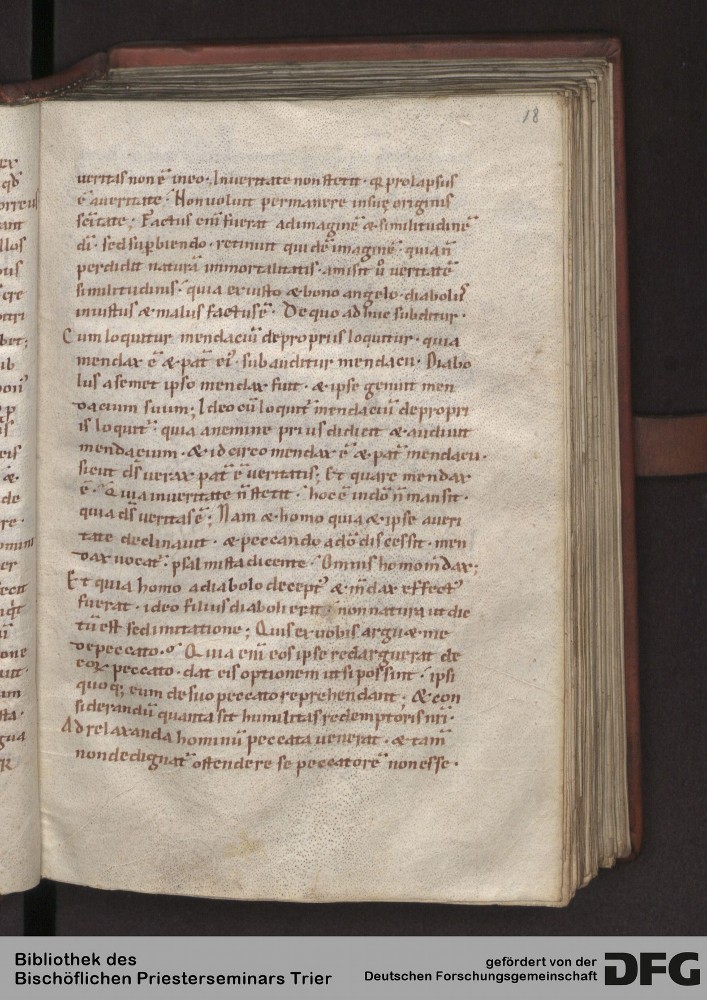 18
ueritas non ē in eo · In ueritate non stetit · qꝛ prolapsus
ē a ueritate · Non voluit permanere in suę originis
scītate ; Factus enī fuerat ad imaginē & similitudinē
dī · sed suꝑbiendo · retinuit quidē imaginē · quia n̄
perdidit naturā immortalitatis · amisit ů ueritatē
similitudinis · quia ex iusto & bono angelo · diabolus
iniustus & malus factus ē · De quo adhuc subditur ·
Cum loquitur mendaciū de propriis loquitur · quia
mendax ē & pat̄ eiꝰ · subauditur mendacii · Diabo
lus a semet ipso mendax fuit · & ipse genuit men
dacium suum ; Ideo cū loquit̄ mendaciū de propri
is loquit̄ · quia a nemine prius didicit & audiuit
mendacium · & idcirco mendax ē & pat̄ mendacii ·
sicut ds̄ uerax pat̄ ē ueritatis ; Et quare mendax
ē · Quia in ueritate n̄ stetit · hoc ē in dō n̄ mansit ·
quia ds̄ ueritas ē ; Nam & homo quia & ipse a ueri
tate declinauit · & peccando a dō discessit · men
dax uocat̄ · psalmista dicente · Omnis homo m̄dax ;
Et quia homo a diabolo deceptꝰ & m̄dax effectꝰ
fuerat · ideo filius diaboli erat · non natura ut dic
tū est sed imitatione ; Quis ex uobis arguet me
de peccato · Quia enī eos ipse redarguerat de
eoꝝ peccato · dat eis optionem ut si possint · ipsi
quoq; eum de suo peccato reprehendant · & con
siderandū quanta sit humilitas redemptoris nri ·
Ad relaxanda hominū peccata uenerat · & tam̄
non dedignat̄ ostendere se peccatorē non esse ·
Bibliothek des
Bischöflichen Priesterseminars Trier
gefördert von der
Deutschen Forschungsgemeinschaft
DFG